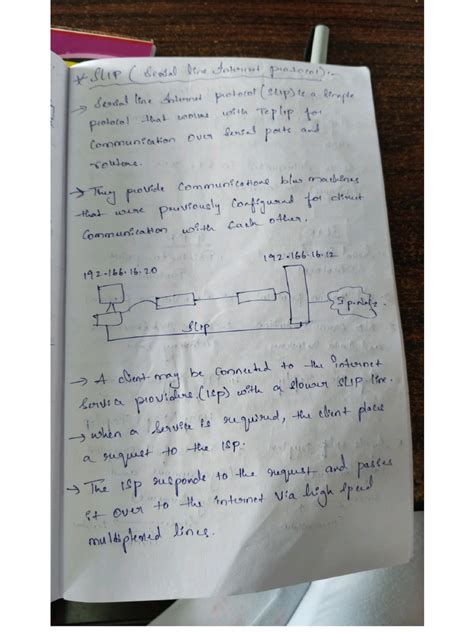 * SLIP ( Serial line Internet protocol):-
→ Serial line Internet protocol (SLIP) is a simple
protocol that works with TCP/IP for
communication over serial ports and
routers.
→ They provide communications b/w machines
that were previously configured for direct
communication with each other.
192.166.16.20
192.166.16.12
SLIP
→ A client may be connected to the Internet
service providers (ISP) with a slower SLIP line.
→ when a service is required, the client places
a request to the ISP.
→ The ISP responds to the request and passes
it over to the internet via high speed
multiplexed lines.